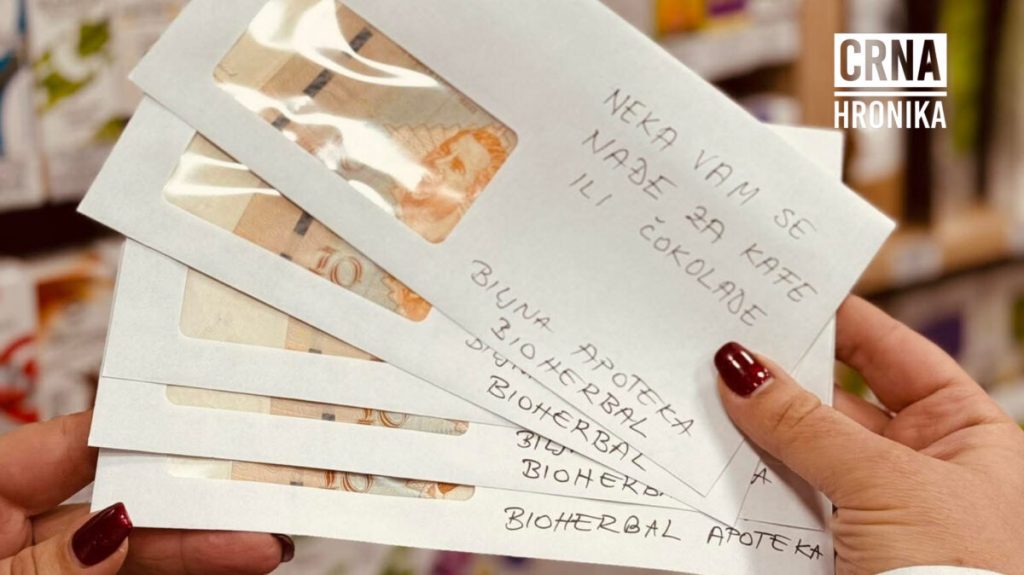 CRNA
HRONIKA
NEKA VAM SE
NAĐE ZA KAFE
ILI ČOKOLADE
BILJNA APOTEKA
BIOHERBAL
BIOHERBAL
BIOHERBA
A
BIOHERBAL APOTEKA
10